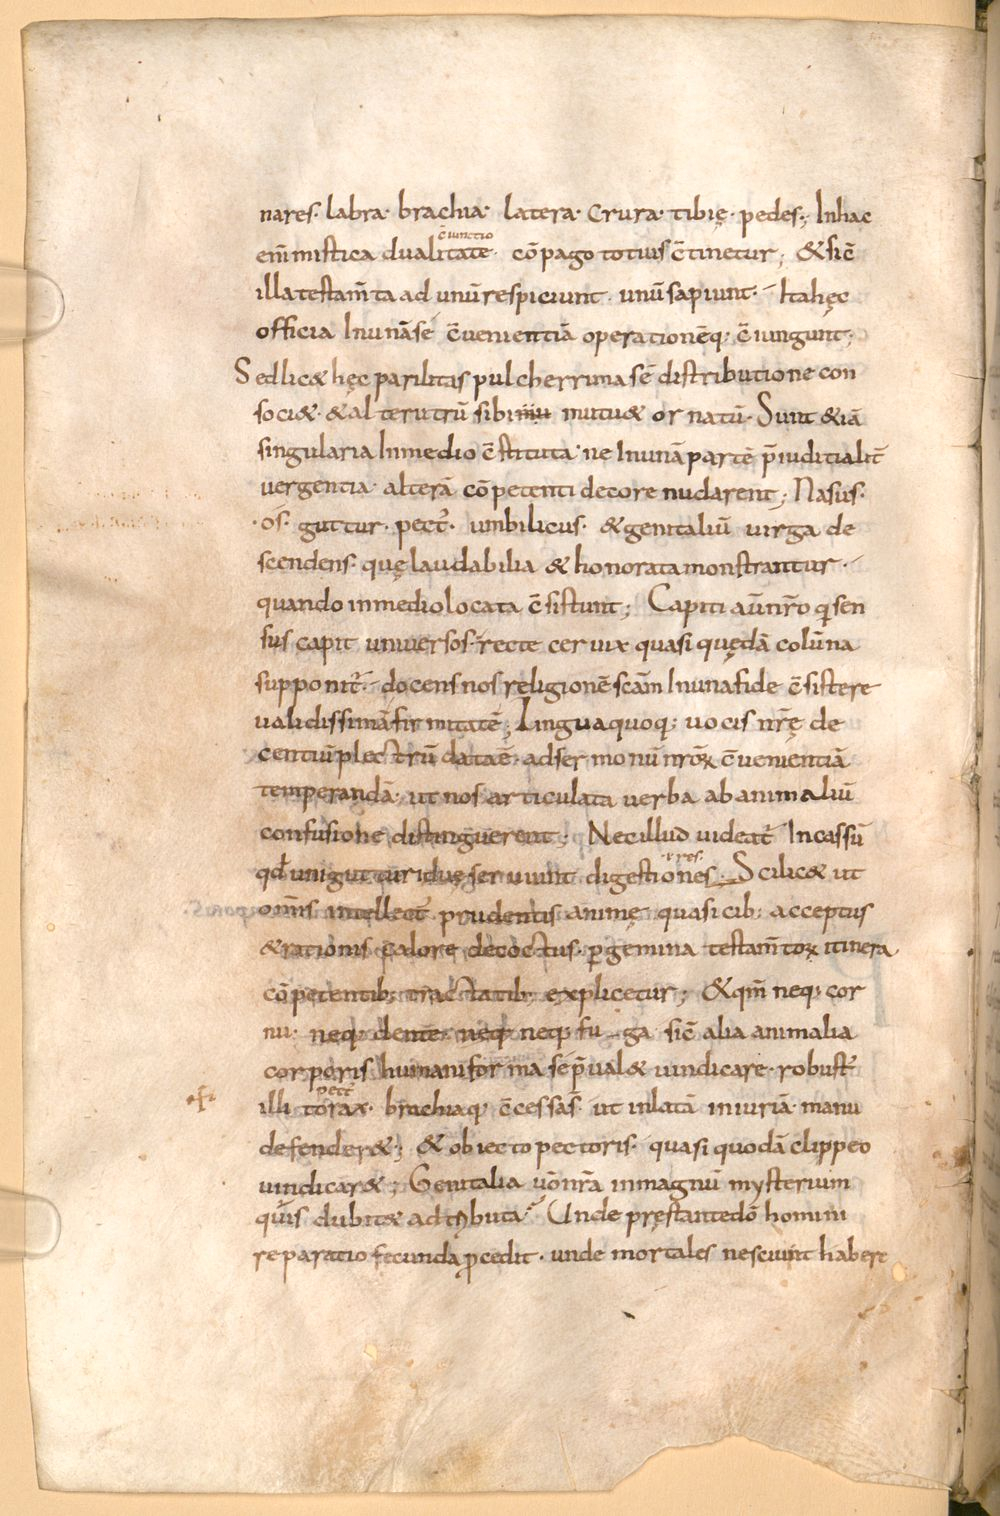 nares· labra· brachia· latera· crura· tibię· pedes·; Inhac
c̄iunctio
eni̅ mistica dualitate· co̅pago totius c̄tinetur; & sic̄
illa testam̄ta ad unu̅ respiciunt· unu̅ sapiunt· Ita hęc
officia Inuna̅ se c̄uenientia̅ operatione̅q; c̄iungunt;
Sed lic& hęc parilitas pulcherrima se̅ distributione con
soci&· & alterutru̅ sibi mutu& ornatu̅· Sunt &ia̅
singularia Inmedio c̄stituta· ne Inuna̅ parte̅ p̄iuditialit̄
uergentia· altera̅ co̅petenti decore nudarent; Nasus·
·os· guttur· pect̄· umbilicus· & genitaliu̅ uirga de
scendens· quę laudabilia & honorata monstrantur·
quando inmedio locata c̄sistunt; Capiti au̅ nr̄o q̄ sen
sus capit uniuersos· recte ceruix quasi quęda̅ colu̅na
supponit̄· docens nos religione̅ sca̅m Inuna fide c̄sistere
ualidissima̅ firmitate̅; Lingua quoq; uocis nr̄ę de
centiu̅ plectru̅ data e̅· ad sermonu̅ nr̄oꝝ c̄uenientia̅
temperanda̅· ut nos articulata uerba ab animaliu̅
confusione distinguerent; Nec illud uideat̄ Incassu̅
·rres·
qđ uni gutturi duę seruiunt digestiones· Scilic& ut
om̄is intellect̄ prudentis animę quasi cib; acceptus
& rationis calore decoctus· ꝑ gemina testam̄toꝝ itinera
co̅petentib; tractatib; explicetur; & qm̄ neq; cor
nu· neq; dente· neq; neq; fu ga sic̄ alia animalia
corporis humani forma se p̄ual& uindicare· robust̄
pect̄
illi torax· brachiaq; c̄cessa s̄· ut inlata̅ iniuria̅ manu
defender&; & obiecto pectoris· quasi quoda̅ clippeo
uindicar&; Genitalia uo̅ nr̄a inmagnu̅ mysterium
quis dubit& adtributa· Unde pręstante do̅ homini
reparatio fecunda ꝓcedit· unde mortales nesciunt habere